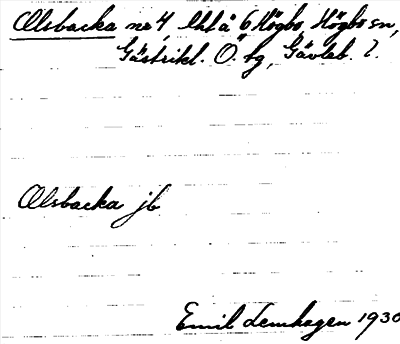 Olsbacka nr 4 Utÿ å 6 Högbo, Högbo sn,
Gästrikl. Ö. tg, Gävleb. l.
Olsbacka jb
Emil Lemhagen 1930